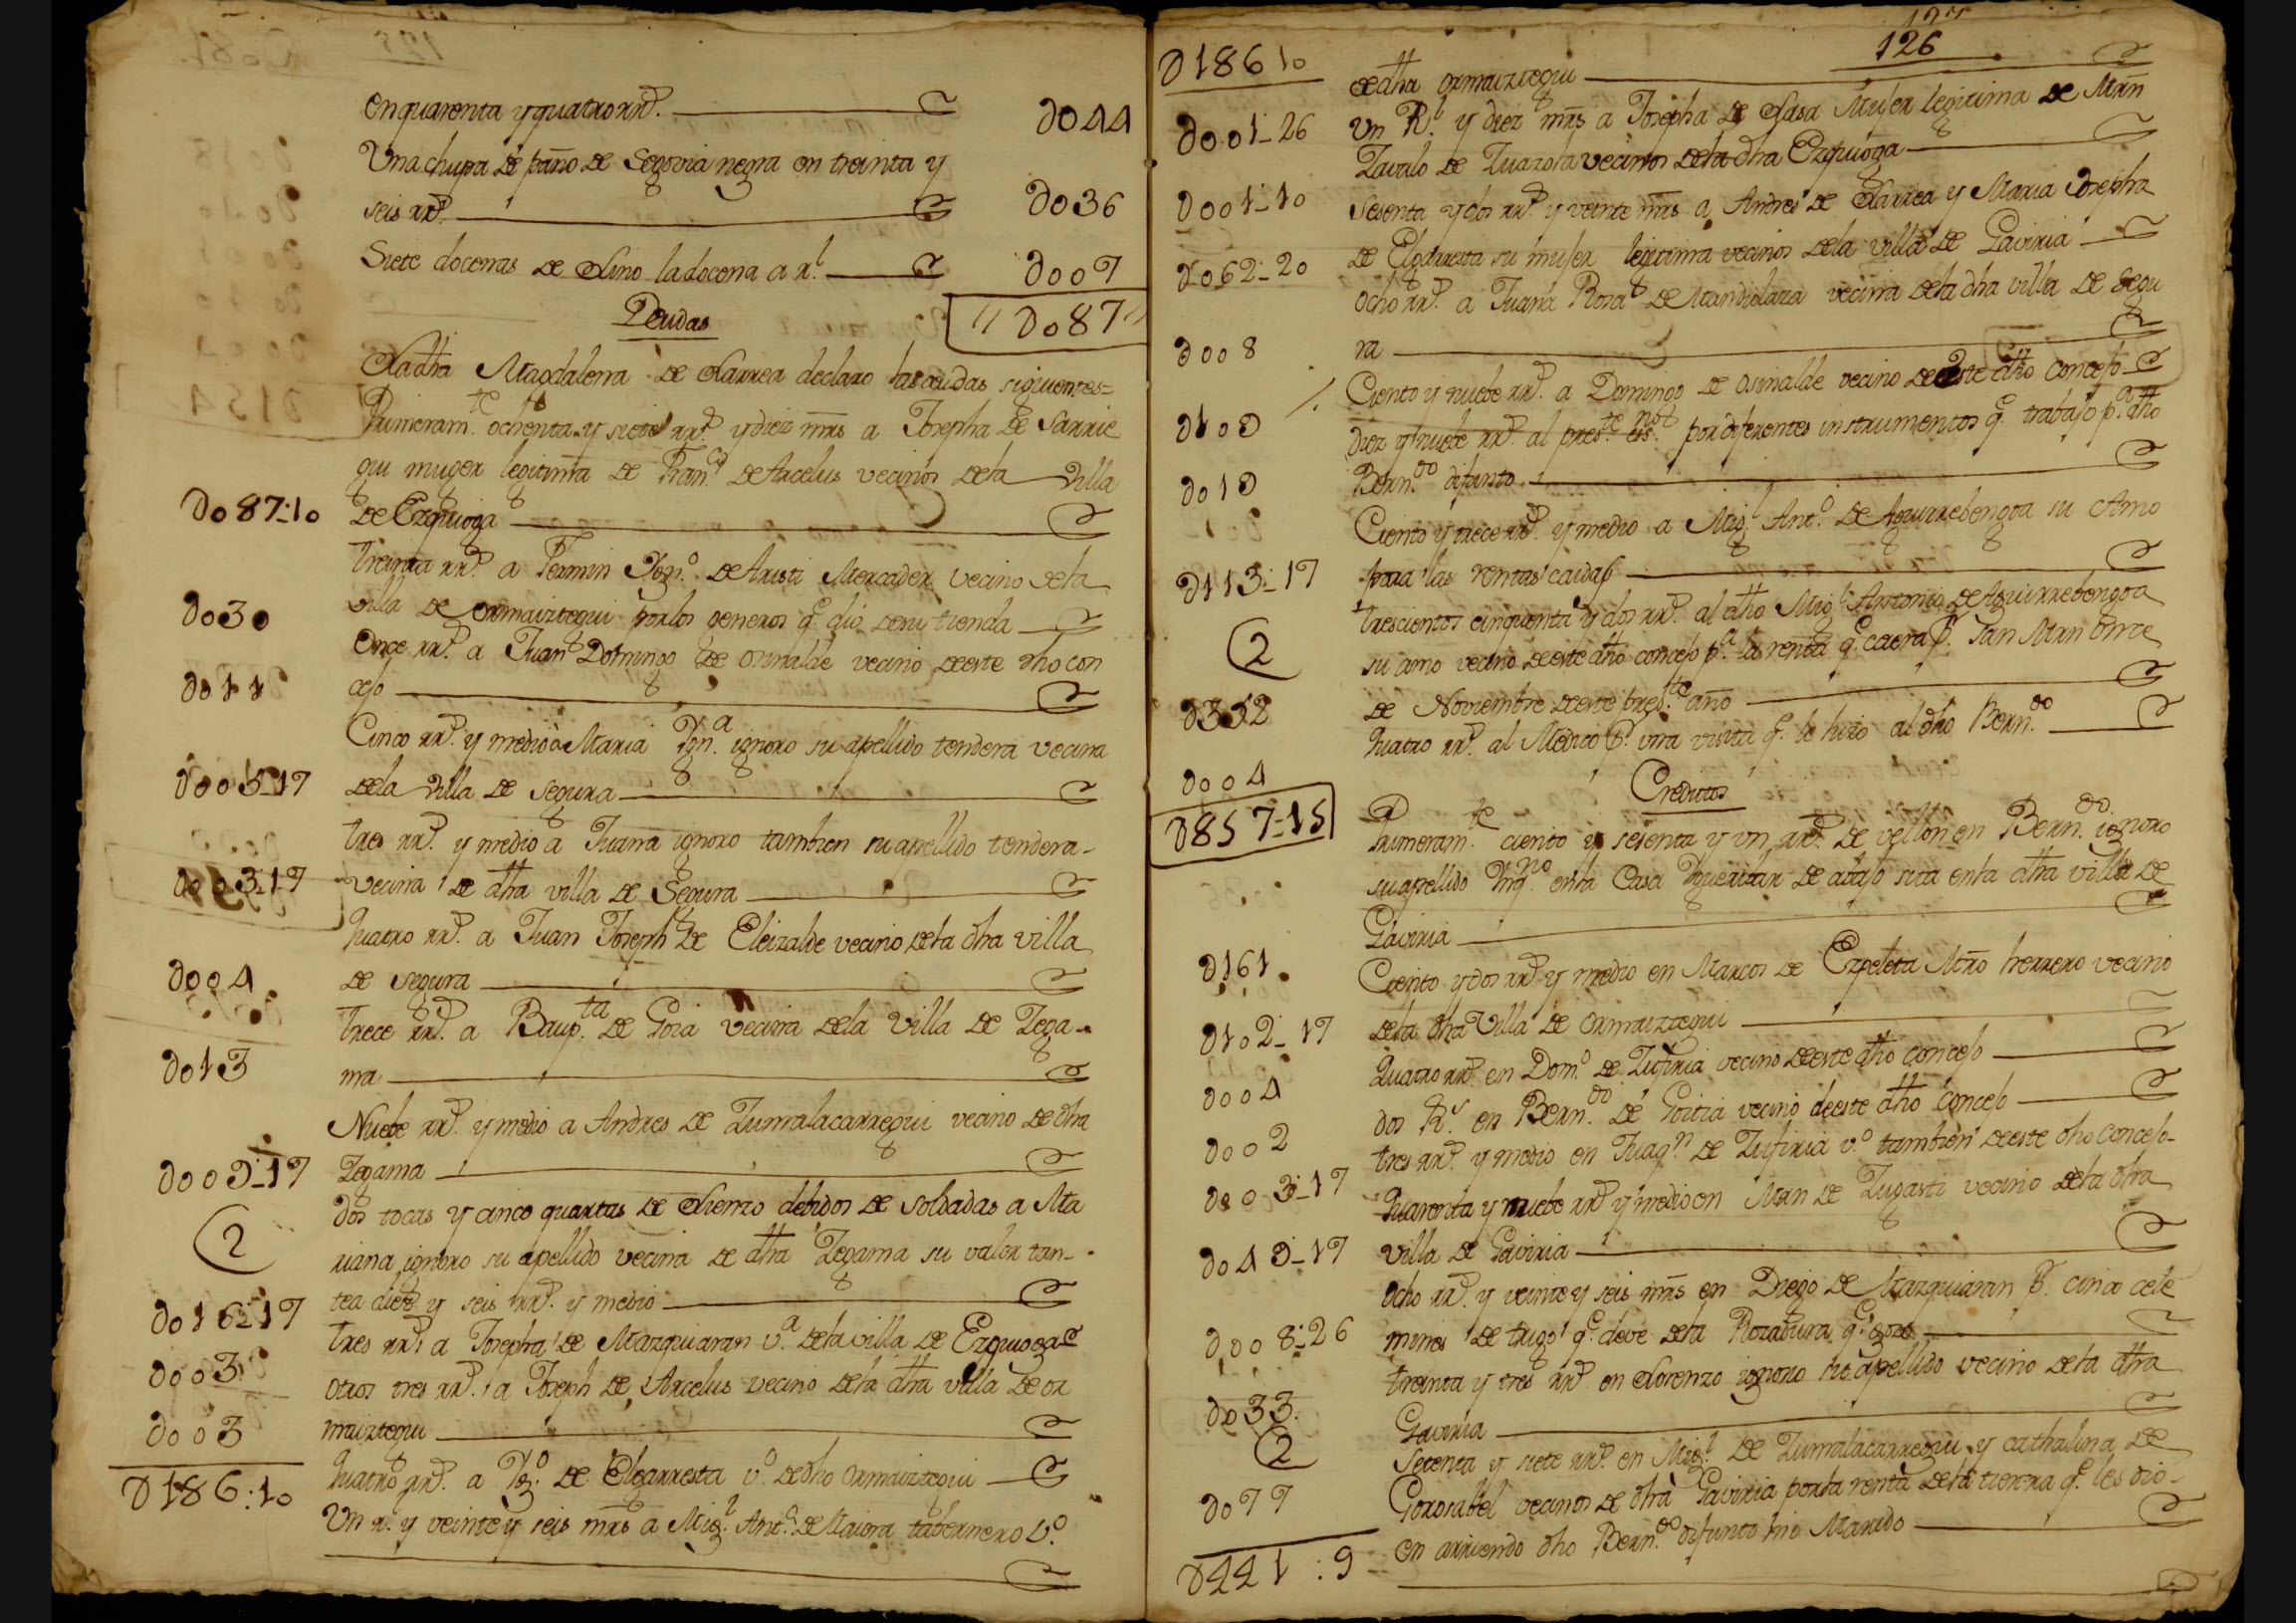 en quarenta y quatro rr.s D044
Una chupa de paño de Segovia negra en treinta y
seis rr.s D036
Siete docenas de Lino la docena a r.l D007
Deudas D087
La dha Magdalena de Larrea declaro las deudas siguientes=
Primeram.te ochenta y siete rr.s y diez mrs a Josepha de Sarrie
gui muger legitima de Fran.co de Arcelus vecinos dela Villa
D087-10 de Ezquioga
treinta rr.s a Fermin Ign.o de Aristi Mercader vecino dela
D030 villa de Ormaiztegui por los generos q.e dio de su tienda
Once rr.s a Juan Domingo de Osinalde vecino de este dho con
D011 cejo
Cinco rr.s y medio a Maria Ign.a ignoro su apellido tendera vecina
D005-17 dela Villa de Segura
tres rr.s y medio a Juana ignoro tambien su apellido tendera
D003-17 vecina de dha villa de Segura
Quatro rr.s a Juan Joseph de Eleizalde vecino dela dha villa
D004 de Segura
trece rr.s a Baup.ta de Goia vecina dela Villa de Zega
D013 ma
Nuebe rr.s y medio a Andres de Zumalacarregui vecino de dha
D009-17 Zegama
dos tocas y cinco quartas de Lienzo debidos de soldadas a Ma
2 riana ignoro su apellido vecina de dha Zegama su valor tan
D016-17 tea diez y seis rr.s y medio
D003 tres rr.s a Josepha de Mazquiaran v.a dela villa de Ezquioga
otros tres rr.s a Joseph de Arcelus vecino dela dha villa de Or
D003 maiztegui
D186:10 Quatro rr.s a Ig.o de Elgarresta v.o de dho Ormaiztegui
Un r.l y veinte y seis mrs a Mig.l Ant.o de Maiora tabernero v.o
126
D186 10 de dha Ormaiztegui
D001-26 Un R.l y diez mrs a Josepha de Lasa Mujer legitima de Mrn
D001-10 Zavalo de Zuazola vecinos dela dha Ezquioga
Sesenta y dos rr.s y veinte mrs a Andres de Larrea y Maria Josepha
D062-20 de Elgarresta su mujer legitima vecinos dela villa de Gaviria
Ocho rr.s a Juana Rosa de Mandiolaza vecina dela dha villa de Segu
D008 ra
D109 Ciento y nuebe rr.s a Domingo de Osinalde vecino de este dho concejo
diez y nuebe rr.s al pres.te ess.no por diferentes instrumentos q.e trabajo p.a dho
D019 Bern.do difunto
Ciento y trece rr.s y medio a Mig.l Ant.o de Aguirrebengoa su Amo
D113-17 para las rentas caidas
trescientos cinquenta y dos rr.s al dho Mig.l Antonio de Aguirrebengoa
2 su amo vecino de este dho concejo p.a la renta q.e caera p.r San Mrn Once
D352 de Noviembre de este pres.te año
D004 Quatro rr.s al Medico p.r una visita q.e le hizo al dho Bern.do
Creditos
D857-15 Primeram.te ciento y sesenta y un rr.s de vellon en Bern.do ignoro
su apellido Inq.no en la Casa de abajo sita en la dha villa de
D161 Gaviria
Ciento y dos rr.s y medio en Marcos de Ezpeleta Mro herrero vecino
D102-17 dela dha Villa de Ormaiztegui
D004 Quatro rr.s en Dom.o de Zufiria vecino de este dho concejo
D002 dos R.s en Bern.do de Goitia vecino de este dho concejo
D003-17 tres rr.s y medio en Juaq.n de Zufiria v.o tambien de este dho concejo
Quarenta y nuebe rr.s y medio en Mrn de Zugasti vecino dela dha
D049-17 Villa de Gaviria
Ocho rr.s y veinte y seis mrs en Diego de Mazquiaran p.r cinco cele
D008:26 mines de trigo q.e deve dela Rozadura q.e gozo
treinta y tres rr.s en Lorenzo ignoro su apellido vecino dela dha
D033 Gaviria
2 Setenta y siete rr.s en Mig.l de Zumalacarregui y Cathalina de
D077 Gorosabel vecinos de dha Gaviria por la renta dela tierra q.e les dio
D441:9 en arriendo dho Bern.do difunto mio Marido